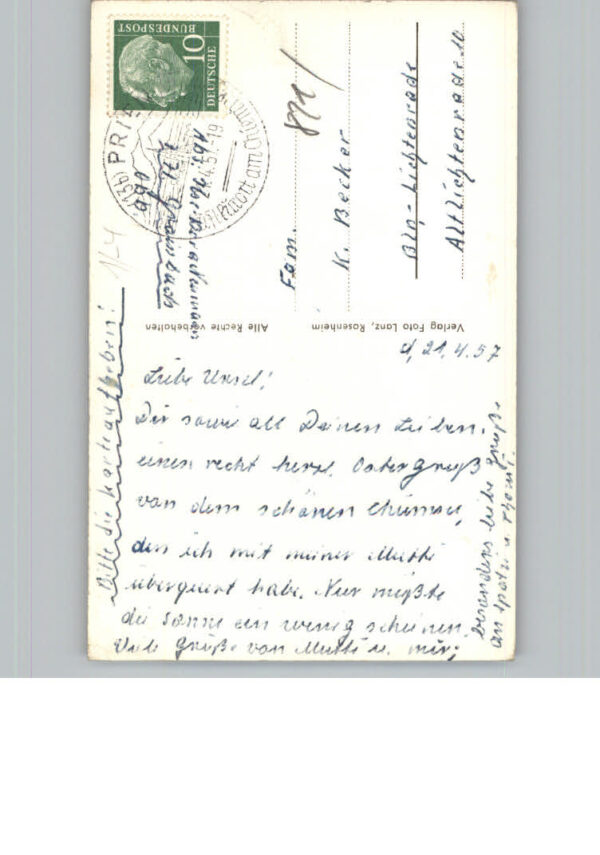 d, 21.4.57
Liebe Ursel!
Dir sowie all Deinen Lieben
einen recht herzl. Ostergruß
von dem schönen Chiemsee,
den ich mit meiner Mutti
überquert habe. Nur müßte
die Sonne ein wenig scheinen.
Viele Grüße von Mutti u. mir,
besonders liebe Grüße
an
Bitte die Karte aufheben!
Fam.
K. Becker
Bln.-Lichtenrade
Alt Lichtenrade 10
Verlag Foto Lanz, Rosenheim
Alle Rechte vorbehalten
DEUTSCHE
BUNDESPOST
10
(13b) PRIEN